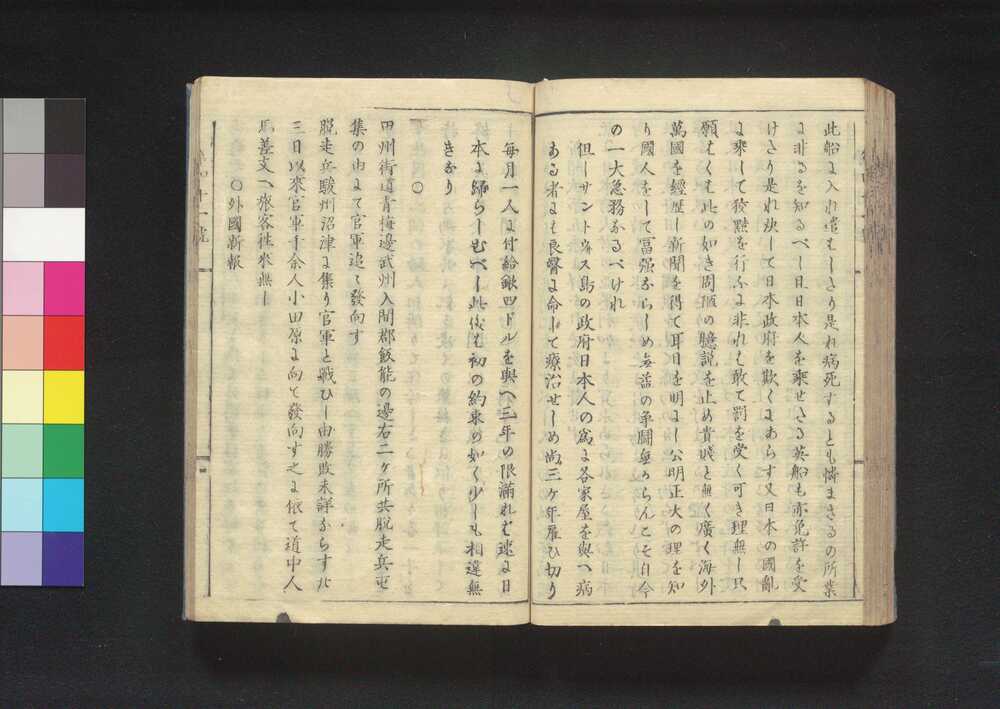 此船に入れ遣むしたり是れ病死するとも憐まさるの所業
に非るを知るべし且日本人を乗せたる英船も亦免許を受
けたり是れ決して日本政府を欺くにあらす又日本の國亂
に乗して狡黠を行ふに非れは敢て罰を受く可き理無し只
願はくは此の如き固陋の臆説を止め貴賤と無く廣く海外
萬國を經歴し新聞を得て耳目を明にし公明正大の理を知
り國人をして冨強ならしめ無益の爭鬪無からんこそ自今
の一大急務なるべけれ
但しサントウ井ス島の政府日本人の爲に各家屋を與へ病
ある者はも良醫に命して療治せしめ尚三ケ年雇ひ切り
し毎月一人に付給銀四ドルを與へ三年の限滿れは速に日
本に歸らしむべし此儀も初の約束の如く少しも相違無
きなり
〇
甲州街道青梅邊武州入間郡飯能の邊右二ケ所共脱走兵屯
集の由にて官軍追て發向す
脱走兵駿州沼津に集り官軍と戰ひし由勝敗未詳ならす此
三日以來官軍千余人小田原に向て發向す之に依て道中人
馬差支へ旅客徃來無し
〇外國新報